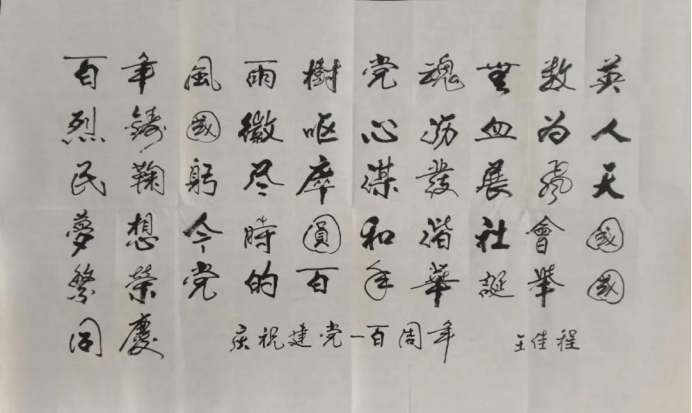 百年風雨樹党魂無数英
烈鑄國徽呕心沥血为人
民鞠躬尽瘁谋發展飛天
夢想今時圓和谐社會國
繁榮党的百年華誕舉國
同慶 庆祝建党一百周年 王佳程